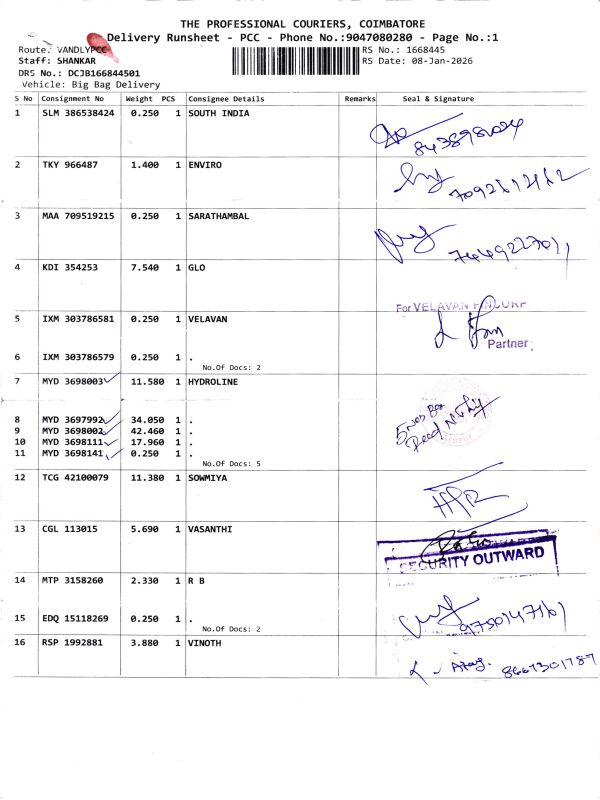 THE PROFESSIONAL COURIERS, COIMBATORE
Delivery Runsheet - PCC - Phone No.:9047080280 - Page No.:1
Route: VANDLYPCC RS No.: 1668445
Staff: SHANKAR RS Date: 08-Jan-2026
DRS No.: DCJB166844501
Vehicle: Big Bag Delivery
S No Consignment No Weight PCS Consignee Details Remarks Seal & Signature
1 SLM 386538424 0.250 1 SOUTH INDIA
2 TKY 966487 1.400 1 ENVIRO
3 MAA 709519215 0.250 1 SARATHAMBAL
4 KDI 354253 7.540 1 GLO
For VELAVAN FINCORP
5 IXM 303786581 0.250 1 VELAVAN
Partner
6 IXM 303786579 0.250 1 .
No.Of Docs: 2
7 MYD 3698003 11.580 1 HYDROLINE
8 MYD 3697992 34.050 1 .
9 MYD 3698002 42.460 1 .
10 MYD 3698111 17.960 1 .
11 MYD 3698141 0.250 1 .
No.Of Docs: 5
12 TCG 42100079 11.380 1 SOWMIYA
13 CGL 113015 5.690 1 VASANTHI
SECURITY OUTWARD
14 MTP 3158260 2.330 1 R B
15 EDQ 15118269 0.250 1 .
No.Of Docs: 2
16 RSP 1992881 3.880 1 VINOTH
8667301787